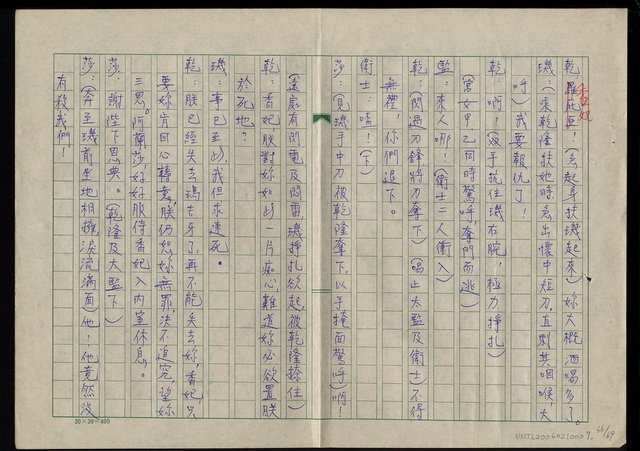 乾:香妃!(急起身扶璣起來)妳大概酒喝多了。
璣:(乘乾隆扶她時,急出懷中短刀,直刺其咽喉,大
呼)我要報仇了!
乾:啊!(双手抗住璣右腕,極力掙扎)
(宮女甲乙同時驚呼,奪門而逃)
監:來人哪!(衛士二人衝入)
乾:(閃過刀鋒將刀奪下)(喝止太監及衛士)不得
無禮,你們退下。
衛士:喳!(下)
莎:(見璣手中刀被乾隆奪下,以手掩面驚呼)啊!
(遠處有閃電及悶雷,璣掙扎欲起,被乾隆捺住)
乾:香妃,朕對妳如此一片痴心,難道妳必欲置朕
於死地?
璣:事已至此,我但求速死。
乾:朕已經失去瑪吉牙了,再不能失去妳,香妃,只
要妳肯回心轉意,朕仍恕妳無罪,決不追究,望妳
三思。阿蘭莎好好服侍香妃入內室休息。
莎:謝陛下恩典。(乾隆及太監下)
莎:(奔至璣前坐地相擁,淚流滿面)他!他竟然沒
有殺我們!
20×20=400
NMTL20060210007.
66/69